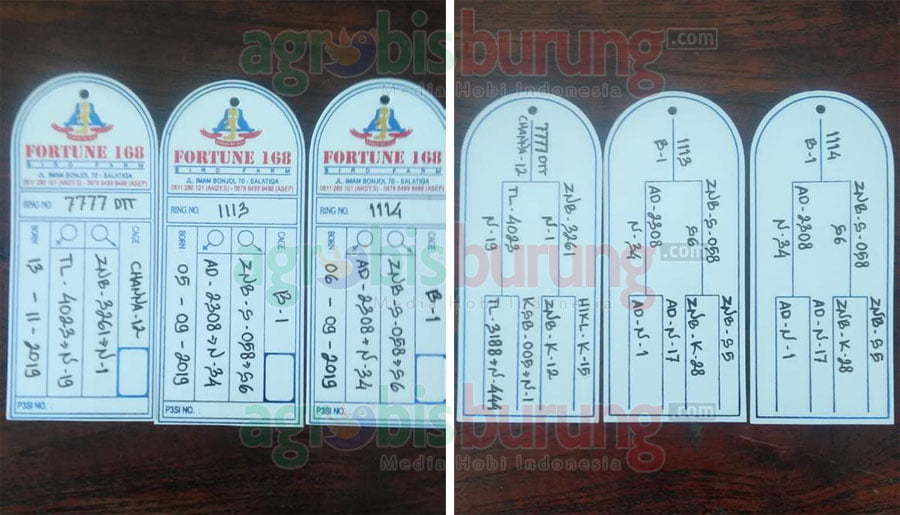 agrobisburung.com
Media Hobi Indonesia
FORTUNE 168
BIRD FARM
JL. IMAM BONJOL 70 - SALATIGA
RING NO. 7777 DTT
CAGE CHANNA-12
ZNB-3261→N-1
TL-4023→N-19
BORN 13-11-2019
P3SI NO.
FORTUNE 168
BIRD FARM
JL. IMAM BONJOL 70 - SALATIGA
0811 280 101 (ANDY S) - 0878 8499 8498 (ASEP)
RING NO. 1113
CAGE B-1
ZNB-S-058→S6
AD-2308→N-34
BORN 05-09-2019
P3SI NO.
FORTUNE 168
BIRD FARM
JL. IMAM BONJOL 70 - SALATIGA
RING NO. 1114
B-1
ZNB-S-058→S6
AD-2308→N-34
BORN 06-09-2019
P3SI NO.
7777 DTT
CHANNA-12
ZNB-3261
N-1
TL-4023
N-19
HIKL-K-15
ZNB-K-12
KSB-005→N-1
TL-3188→N-444
1113
B-1
ZNB-S-058
S6
AD-2308
N-34
ZNB-S5
ZNB-K-28
AD-N-17
AD-N-1
1114
B-1
ZNB-S-058
S6
AD-2308
N-34
ZNB-S5
ZNB-K-28
AD-N-17
AD-N-1
agrobisburung.com
Media Hobi Indonesia
agrobisburung.com
Media Hobi Indonesia